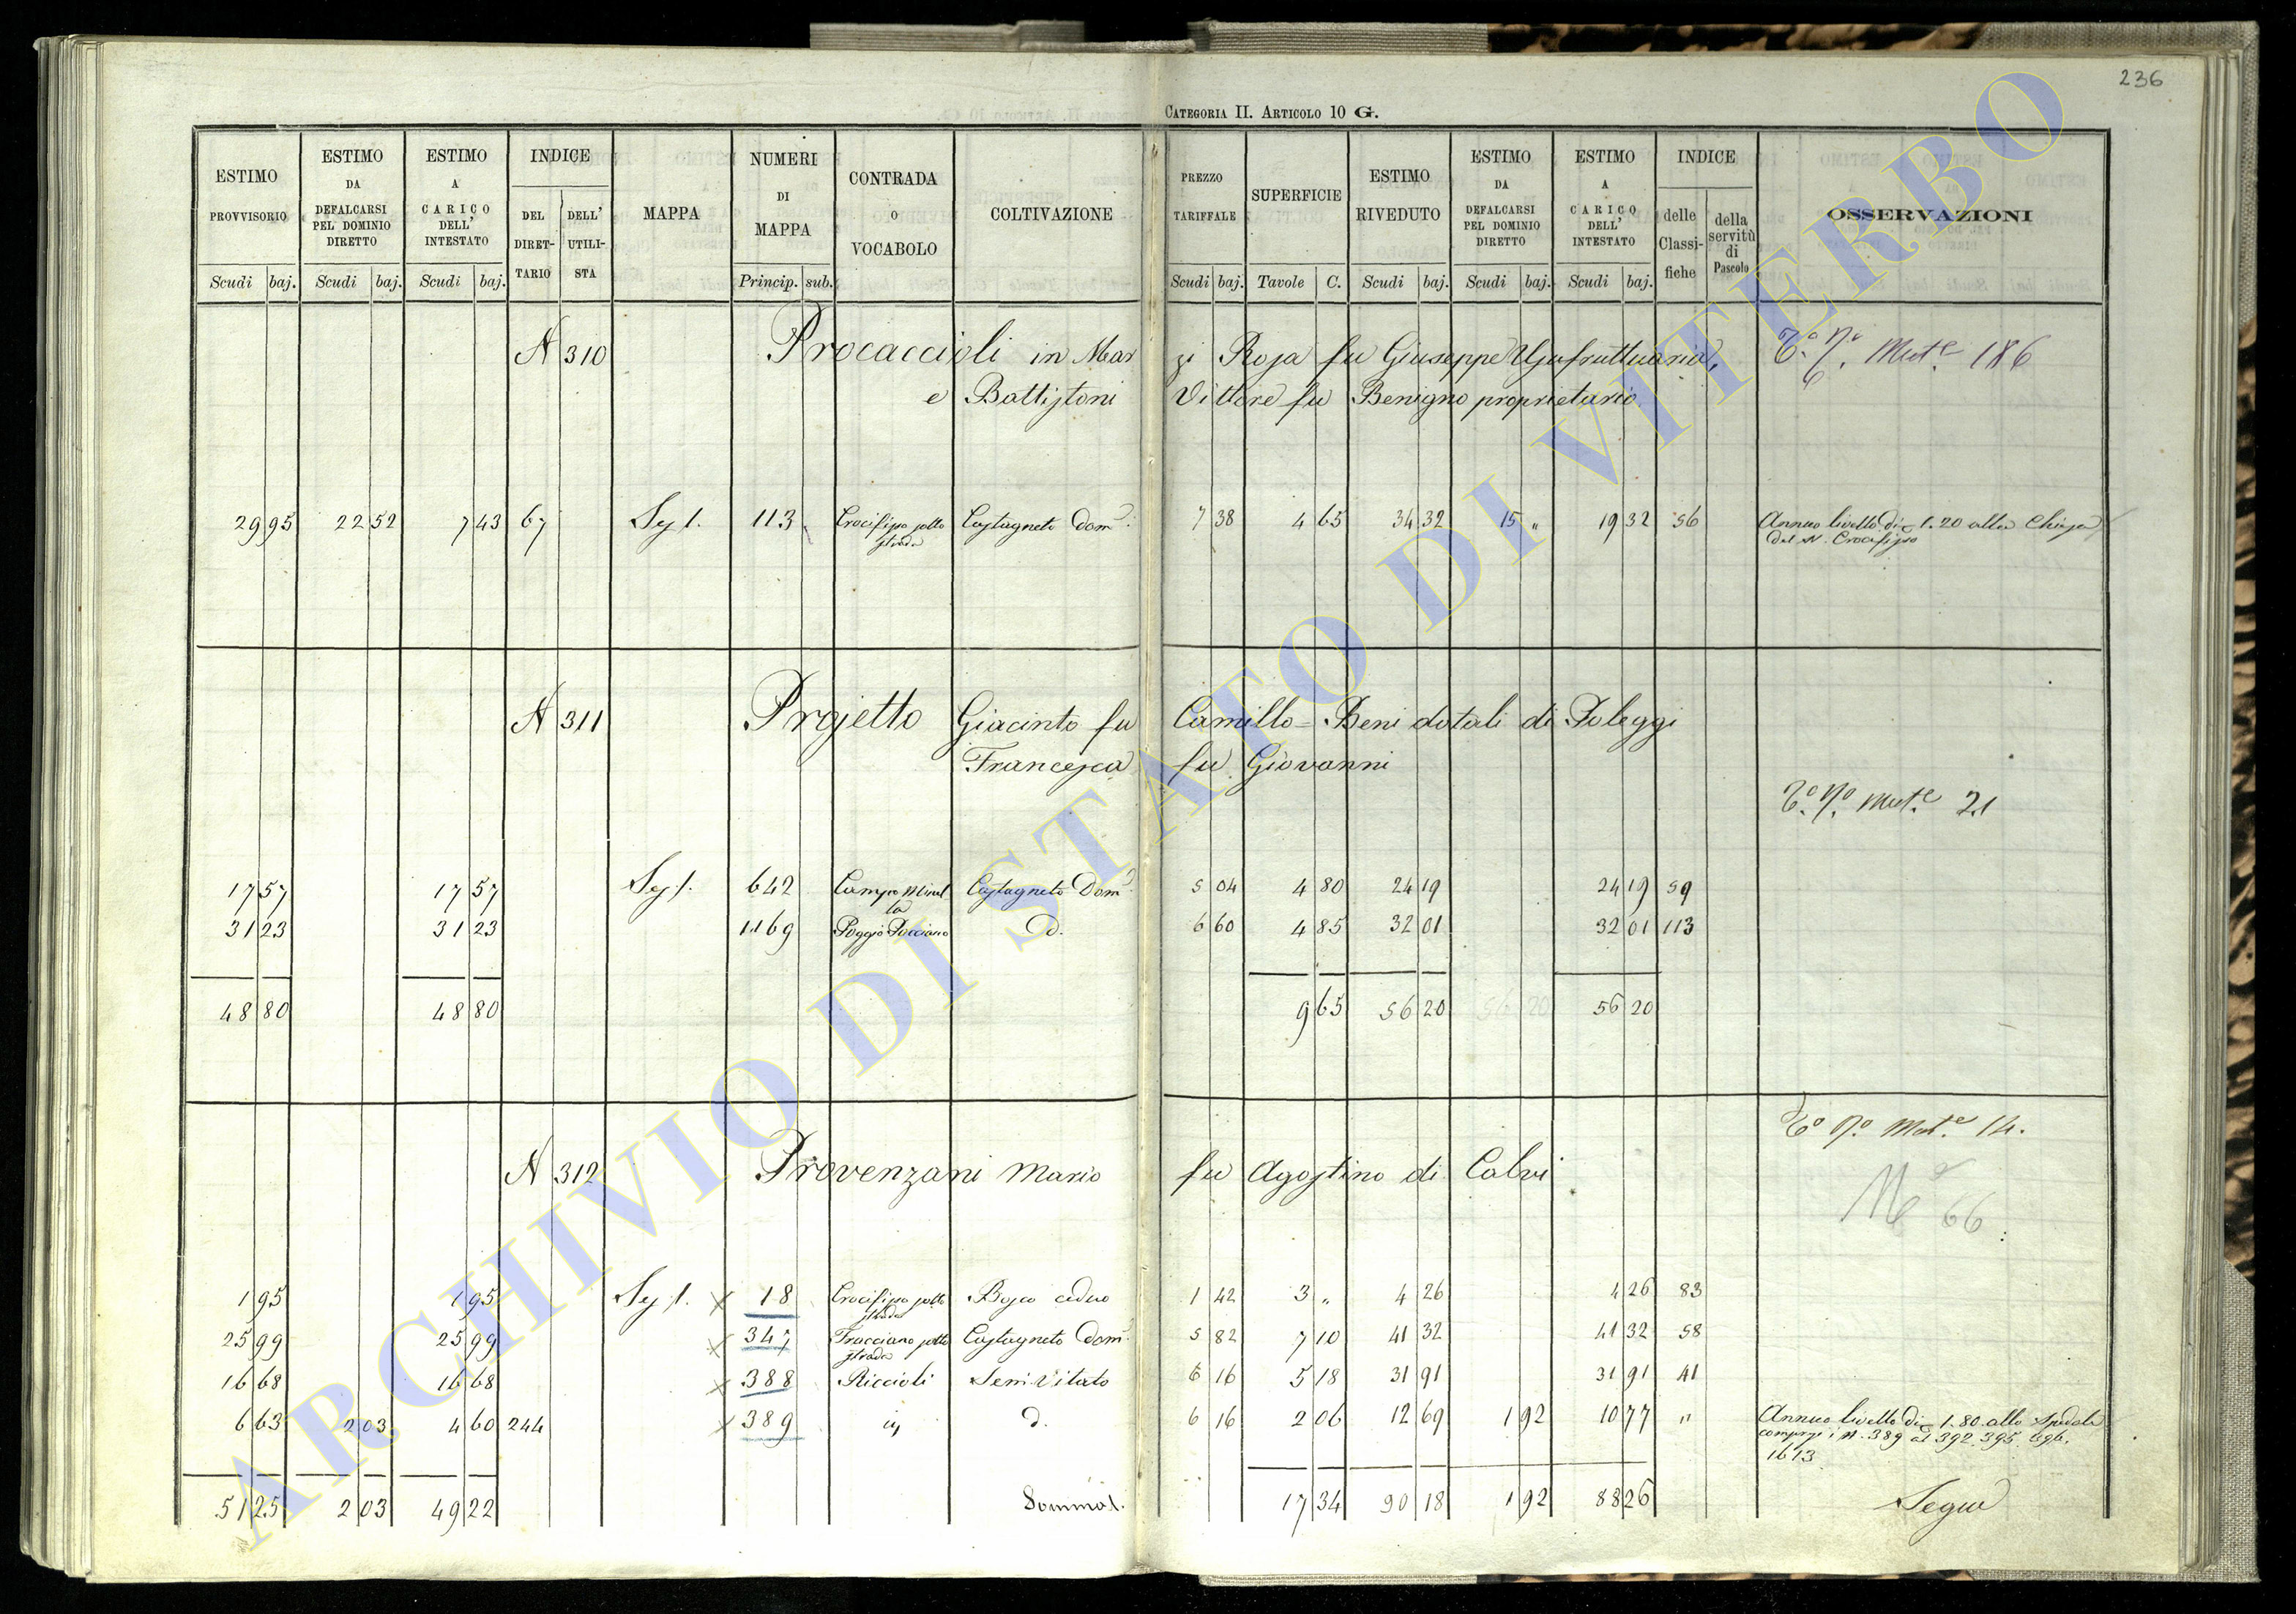 236
CATEGORIA II. ARTICOLO 10 G.
ESTIMO PROVVISORIO Scudi baj. ESTIMO DA DEFALCARSI PEL DOMINIO DIRETTO Scudi baj. ESTIMO A CARICO DELL' INTESTATO Scudi baj. INDICE DEL DIRETTARIO DELL' UTILISTA MAPPA NUMERI DI MAPPA Princip. sub. CONTRADA O VOCABOLO COLTIVAZIONE PREZZO TARIFFALE Scudi baj. SUPERFICIE Tavole C. ESTIMO RIVEDUTO Scudi baj. ESTIMO DA DEFALCARSI PEL DOMINIO DIRETTO Scudi baj. ESTIMO A CARICO DELL' INTESTATO Scudi baj. INDICE delle Classifiche della servitù di Pascolo OSSERVAZIONI
N 310 Procaccioli in Mar zi Rosa fu Giuseppe Usufruttuaria, Mut.e 186
e Battistoni Vittore fu Benigno proprietario
29 95 22 52 7 43 67 113 Crocifisso sotto strada Castagneto Dom. 7 38 4 65 34 32 15 „ 19 32 56 Annuo livello di 1.20 alla Chiesa
del S. Crocifisso
N 311 Projetto Giacinto fu Camillo = Beni dotali di Poleggi
Francesca fu Giovanni
Mut.e 21
17 57 17 57 642 Castagneto Dom. 5 04 4 80 24 19 24 19 59
31 23 31 23 1169 Poggio d. 6 60 4 85 32 01 32 01 113
48 80 48 80 9 65 56 20 56 20 56 20
Mut.e 14.
N 312 Provenzani Mario fu Agostino di Calvi
66
1 95 1 95 18 Crocifisso sotto strada Bosco ceduo 1 42 3 „ 4 26 4 26 83
25 99 25 99 347 Fracciano sotto strada Castagneto Dom. 5 82 7 10 41 32 41 32 58
16 68 16 68 388 Riccioli Sem. Vitato 6 16 5 18 31 91 31 91 41
6 63 2 03 4 60 244 389 d. 6 16 2 06 12 69 1 92 10 77 „ Annuo livello di 1.80 allo Spedale
compresi i N. 389 al 392. 395.
1613
51 25 2 03 49 22 17 34 90 18 1 92 88 26 Segue
ARCHIVIO DI STATO DI VITERBO